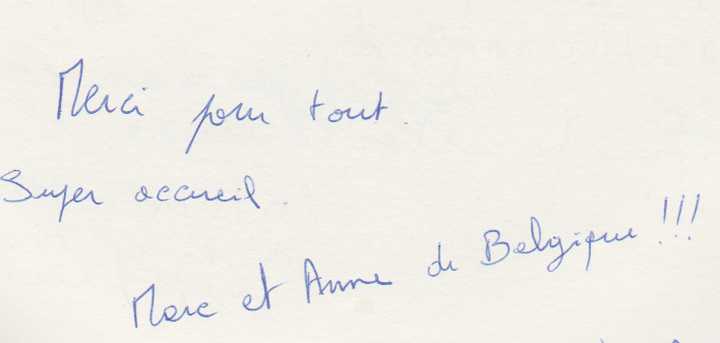 Merci pour tout.
Super accueil.
Marc et Anne de Belgique !!!